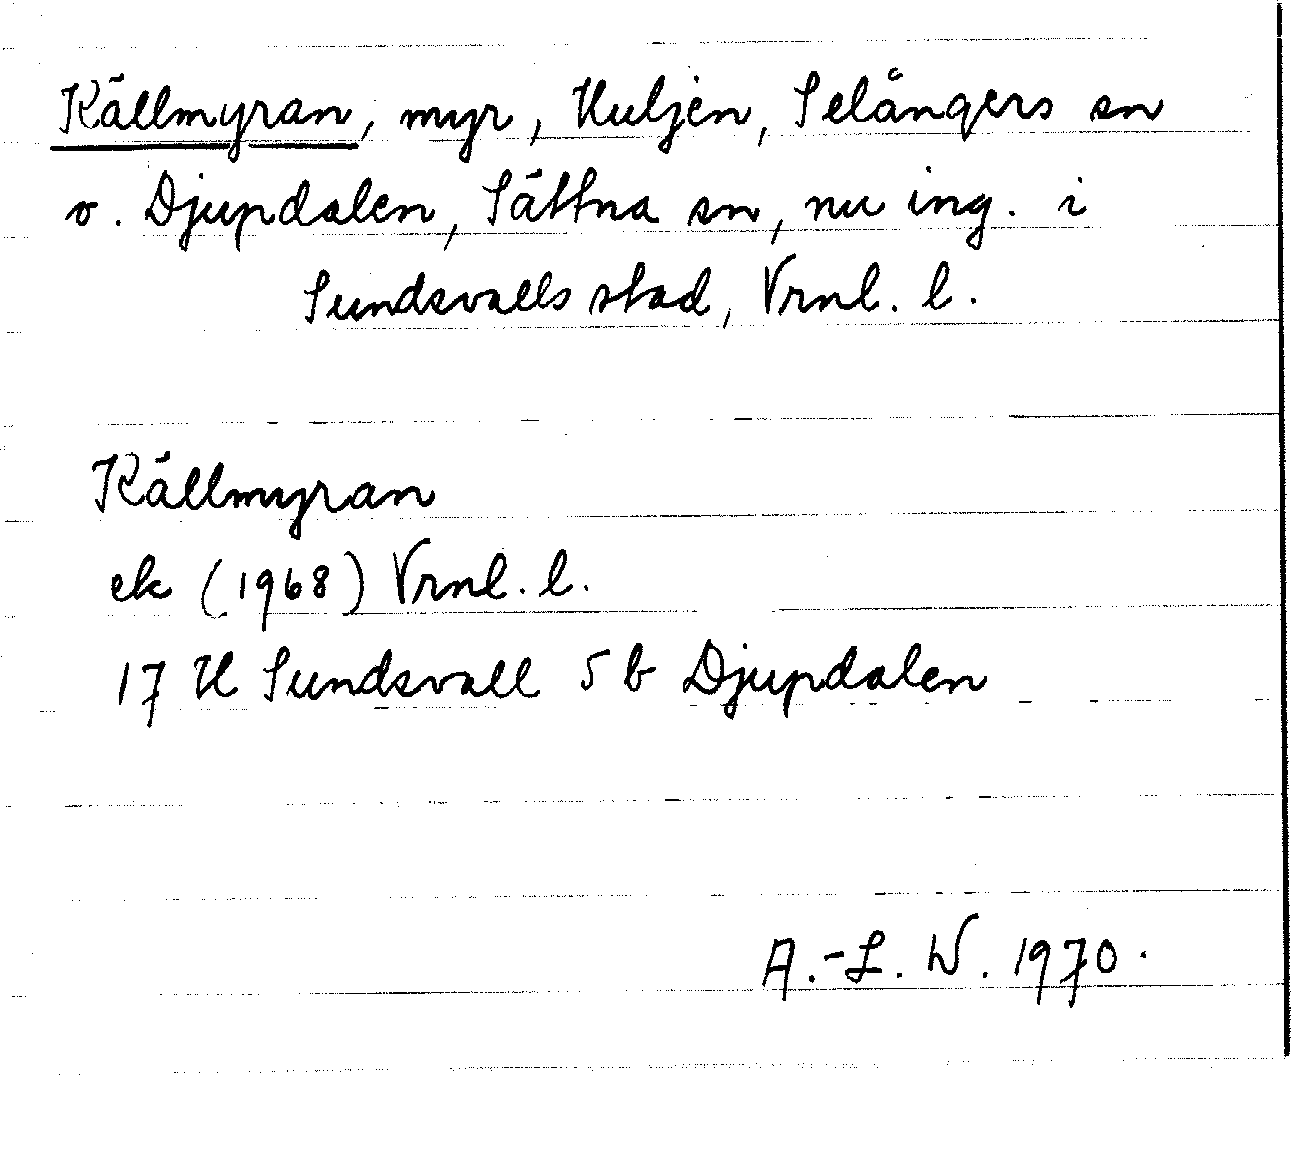 Källmyran, myr, Huljen, Selångers sn
o. Djupdalen, Sättna sn, nu ing. i
Sundsvalls stad, Vrnl. l.
Källmyran
ek (1968) Vrnl. l.
17 H Sundsvall 5 b Djupdalen
A.-L. W. 1970.